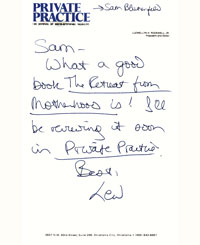 PRIVATE
PRACTICE
→ Sam Blumenfeld
LLEWELLYN H. ROCKWELL, JR.
Sam—
What a good
book The Retreat from
Motherhood is! I'll
be reviewing it soon
in Private Practice.
Best,
Lew